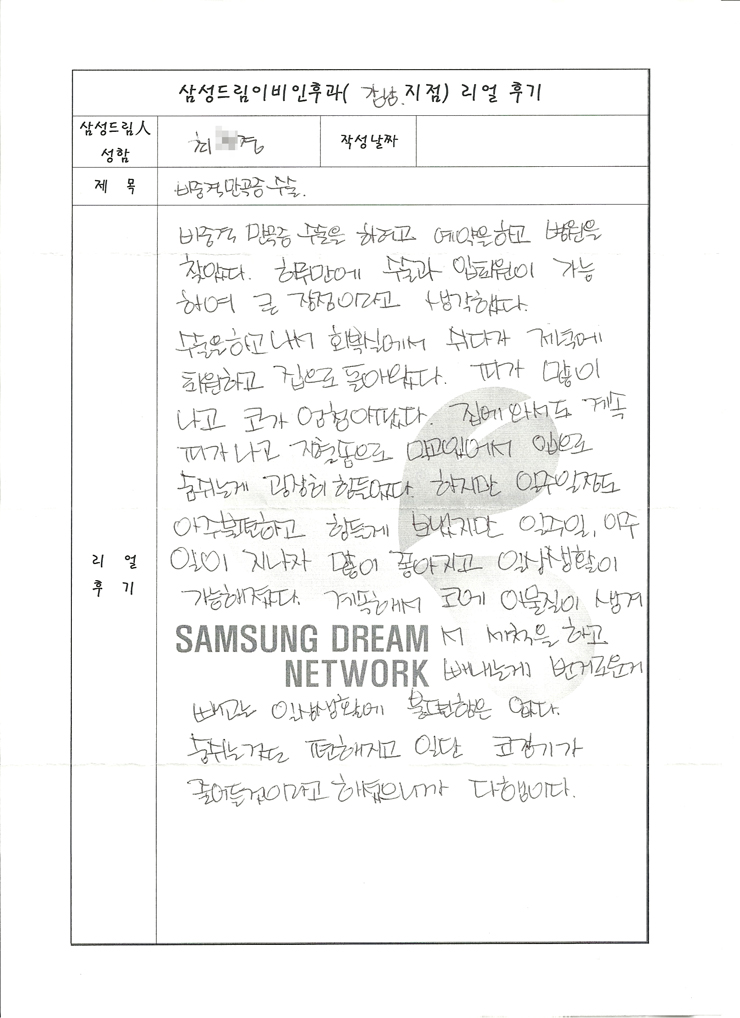 삼성드림이비인후과( 강남 지점) 리얼 후기
삼성드림人
성함
최 경
작성날짜
제 목
비중격만곡증 수술.
리 얼
후 기
비중격 만곡증 수술을 하려고 예약을하고 병원을
찾았다. 하루만에 수술과 입퇴원이 가능
하여 큰 장점이라고 생각했다.
수술을하고나서 회복실에서 쉬다가 저녁에
퇴원하고 집으로 돌아왔다. 피가 많이
나고 코가 엄청아팠다. 집에 와서도 계속
피가 나고 지혈솜으로 막고있어서 입으로
숨쉬는게 굉장히 힘들었다. 하지만 일주일정도
아주불편하고 힘들게 보냈지만 일주일, 이주
일이 지나자 많이 좋아지고 일상생활이
가능해졌다. 계속해서 코에 이물질이 생겨
서 세척을 하고
빼내는게 번거로운거
빼고는 일상생활에 불편함은 없다.
숨쉬는것도 편해지고 일단 코감기가
줄어들것이라고 하셨으니까 다행이다.
SAMSUNG DREAM
NETWORK